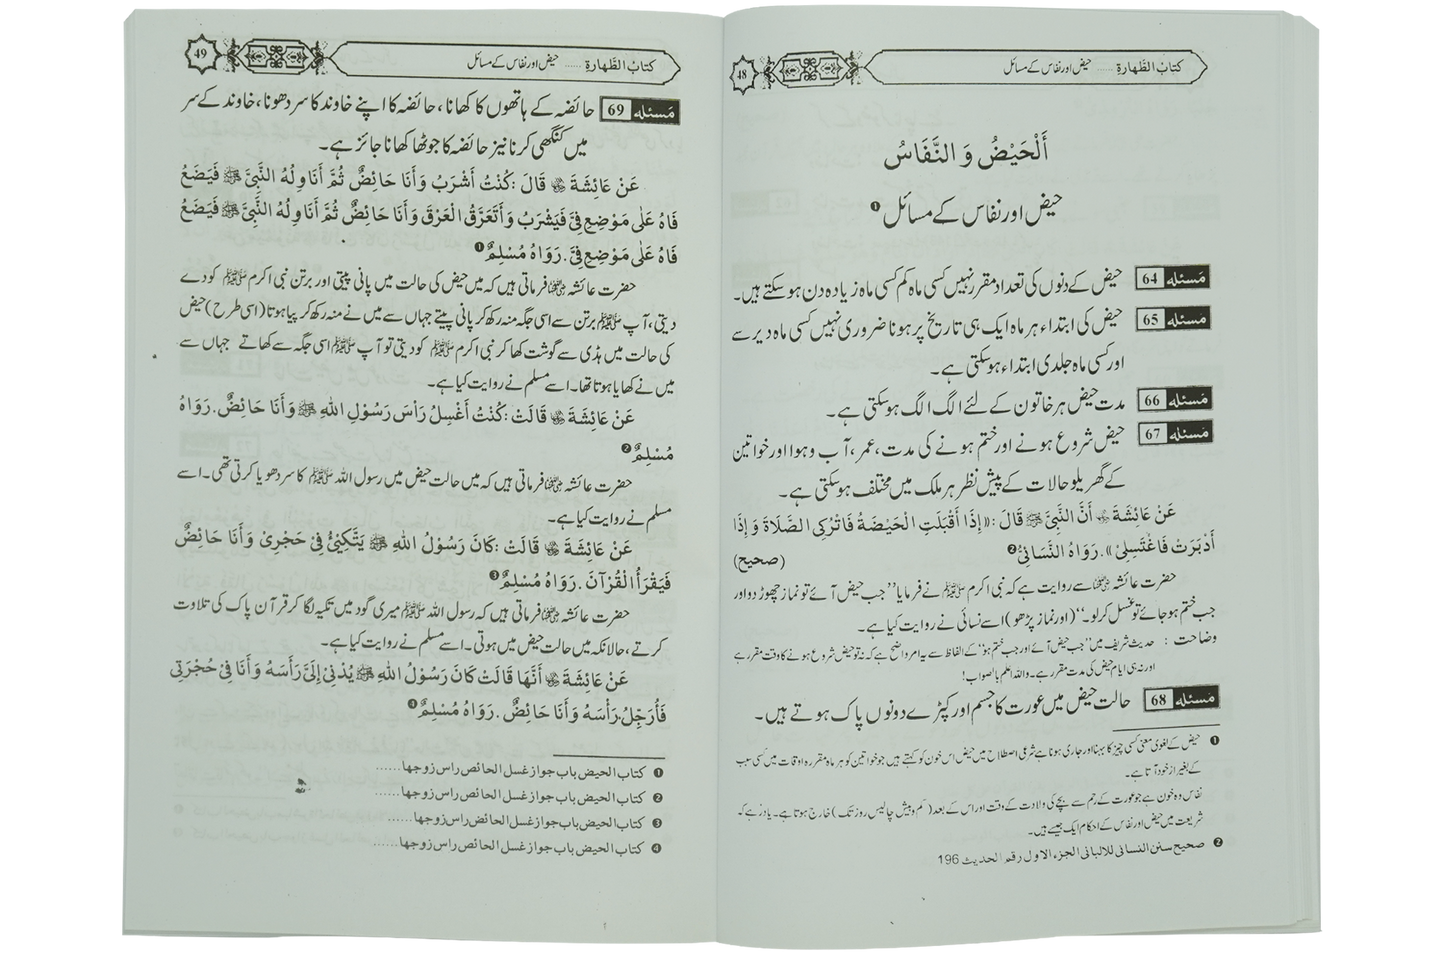 48 کتابُ الطَّهارةِ ...... حیض اور نفاس کے مسائل
أَلْحَيْضُ وَ النَّفَاسُ
حیض اور نفاس کے مسائل ❶
مَسئلہ 64 حیض کے دنوں کی تعداد مقرر نہیں کسی ماہ کم کسی ماہ زیادہ دن ہو سکتے ہیں۔
مَسئلہ 65 حیض کی ابتداء ہر ماہ ایک ہی تاریخ پر ہونا ضروری نہیں کسی ماہ دیر سے
اور کسی ماہ جلدی ابتداء ہو سکتی ہے۔
مَسئلہ 66 مدت حیض ہر خاتون کے لئے الگ الگ ہو سکتی ہے۔
مَسئلہ 67 حیض شروع ہونے اور ختم ہونے کی مدت، عمر، آب و ہوا اور خواتین
کے گھریلو حالات کے پیش نظر ہر ملک میں مختلف ہو سکتی ہے۔
عَنْ عَائِشَةَ رضی اللہ عنہا أَنَّ النَّبِيَّ ﷺ قَالَ :((إِذَا أَقْبَلَتِ الْحَيْضَةُ فَاتْرُكِي الصَّلَاةَ وَ إِذَا
أَدْبَرَتْ فَاغْتَسِلِيْ )). رَوَاهُ النَّسَائِيُّ ❷ (صحیح)
حضرت عائشہ رضی اللہ عنہا سے روایت ہے کہ نبی اکرم ﷺ نے فرمایا ’’جب حیض آئے تو نماز چھوڑ دو اور
جب ختم ہو جائے تو غسل کر لو۔‘‘ (اور نماز پڑھو) اسے نسائی نے روایت کیا ہے۔
وضاحت : حدیث شریف میں ’’جب حیض آئے اور جب ختم ہو‘‘ کے الفاظ سے یہ امر واضح ہے کہ نہ تو حیض شروع ہونے کا وقت مقرر ہے
اور نہ ہی ایام حیض کی مدت مقرر ہے۔ واللہ اعلم بالصواب!
مَسئلہ 68 حالت حیض میں عورت کا جسم اور کپڑے دونوں پاک ہوتے ہیں۔
❶ حیض کے لغوی معنی کسی چیز کا بہنا اور جاری ہونا ہے شرعی اصطلاح میں حیض اس خون کو کہتے ہیں جو خواتین کو ہر ماہ مقررہ اوقات میں کسی سبب
کے بغیر از خود آتا ہے۔
نفاس وہ خون ہے جو عورت کے رحم سے بچے کی ولادت کے وقت اور اس کے بعد (کم و بیش چالیس روز تک) خارج ہوتا ہے۔ یاد رہے کہ
شریعت میں حیض اور نفاس کے احکام ایک جیسے ہیں۔
❷ صحیح سنن النسائی للالبانی الجزء الاول رقم الحدیث 196
49 کتابُ الطَّهارةِ ...... حیض اور نفاس کے مسائل
مَسئلہ 69 حائضہ کے ہاتھوں کا کھانا، حائضہ کا اپنے خاوند کا سر دھونا، خاوند کے سر
میں کنگھی کرنا نیز حائضہ کا جوٹھا کھانا جائز ہے۔
عَنْ عَائِشَةَ رضی اللہ عنہا قَالَ :كُنْتُ أَشْرَبُ وَ أَنَا حَائِضٌ ثُمَّ أُنَاوِلُهُ النَّبِيَّ ﷺ فَيَضَعُ
فَاهُ عَلٰى مَوْضِعِ فِيَّ فَيَشْرَبُ وَ أَتَعَرَّقُ الْعَرْقَ وَ أَنَا حَائِضٌ ثُمَّ أُنَاوِلُهُ النَّبِيَّ ﷺ فَيَضَعُ
فَاهُ عَلٰى مَوْضِعِ فِيَّ. رَوَاهُ مُسْلِمٌ ❶
حضرت عائشہ رضی اللہ عنہا فرماتی ہیں کہ میں حیض کی حالت میں پانی پیتی اور برتن نبی اکرم ﷺ کو دے
دیتی، آپ ﷺ برتن سے اسی جگہ منہ رکھ کر پانی پیتے جہاں سے میں نے منہ رکھ کر پیا ہوتا (اسی طرح) حیض
کی حالت میں ہڈی سے گوشت کھا کر نبی اکرم ﷺ کو دیتی تو آپ ﷺ اسی جگہ سے کھاتے جہاں سے
میں نے کھایا ہوتا تھا۔ اسے مسلم نے روایت کیا ہے۔
عَنْ عَائِشَةَ رضی اللہ عنہا قَالَتْ :كُنْتُ أَغْسِلُ رَأْسَ رَسُوْلِ اللّٰهِ ﷺ وَ أَنَا حَائِضٌ. رَوَاهُ
مُسْلِمٌ ❷
حضرت عائشہ رضی اللہ عنہا فرماتی ہیں کہ میں حالت حیض میں رسول اللہ ﷺ کا سر دھویا کرتی تھی۔ اسے
مسلم نے روایت کیا ہے۔
عَنْ عَائِشَةَ رضی اللہ عنہا قَالَتْ :كَانَ رَسُوْلُ اللّٰهِ ﷺ يَتَّكِئُ فِيْ حَجْرِيْ وَ أَنَا حَائِضٌ
فَيَقْرَأُ الْقُرْآنَ. رَوَاهُ مُسْلِمٌ ❸
حضرت عائشہ رضی اللہ عنہا فرماتی ہیں کہ رسول اللہ ﷺ میری گود میں تکیہ لگا کر قرآن پاک کی تلاوت
کرتے، حالانکہ میں حالت حیض میں ہوتی۔ اسے مسلم نے روایت کیا ہے۔
عَنْ عَائِشَةَ رضی اللہ عنہا أَنَّهَا قَالَتْ كَانَ رَسُوْلُ اللّٰهِ ﷺ يُدْنِيْ إِلَيَّ رَأْسَهُ وَ أَنَا فِيْ حُجْرَتِيْ
فَأُرَجِّلُ رَأْسَهُ وَ أَنَا حَائِضٌ. رَوَاهُ مُسْلِمٌ ❹
❶ کتاب الحیض باب جواز غسل الحائض راس زوجها......
❷ کتاب الحیض باب جواز غسل الحائض راس زوجها......
❸ کتاب الحیض باب جواز غسل الحائض راس زوجها......
❹ کتاب الحیض باب جواز غسل الحائض راس زوجها......